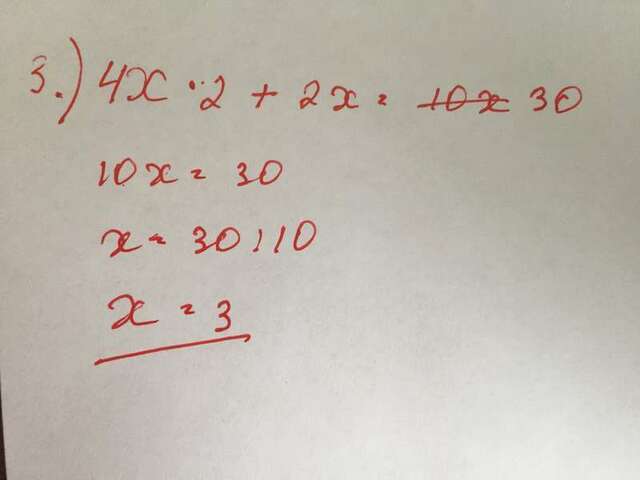 3.) 4x · 2 + 2x = 10x 30
10x = 30
x = 30 : 10
x = 3